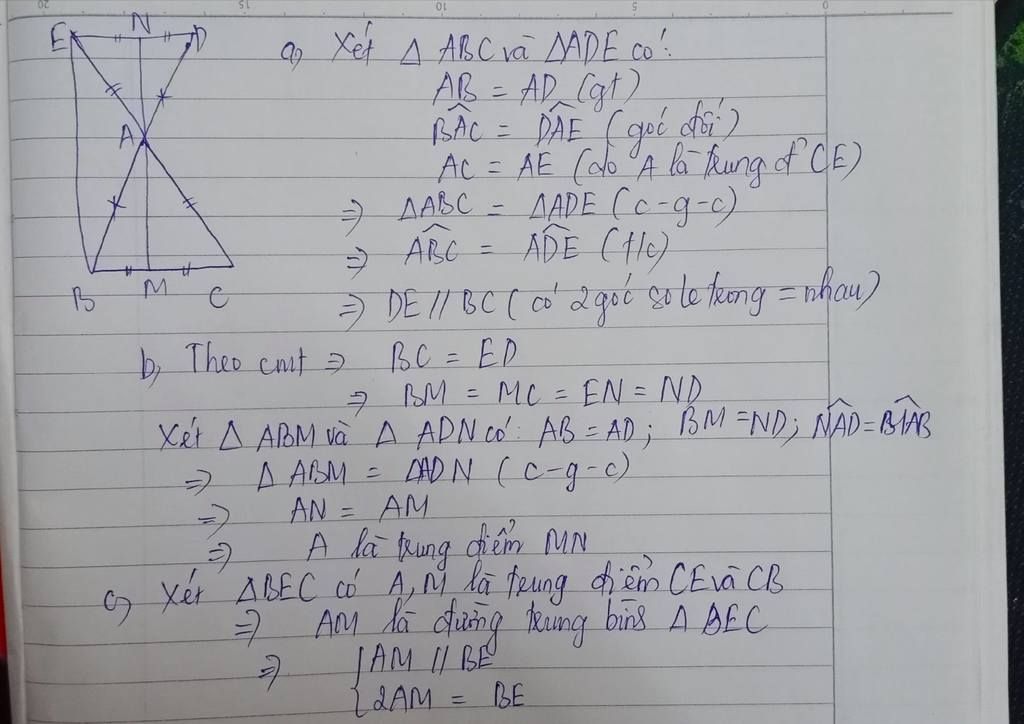 20
15
10
5
0
E N D
A
B M C
a, Xét Δ ABC và ΔADE có:
AB = AD (gt)
B̂AC = D̂AE (góc đối)
AC = AE (do A là trung đ' CE)
⇒ ΔABC = ΔADE (c-g-c)
⇒ ÂBC = ÂDE (t/c)
⇒ DE // BC (có 2 góc so le trong = nhau)
b, Theo cmt ⇒ BC = ED
⇒ BM = MC = EN = ND
Xét Δ ABM và Δ ADN có: AB = AD; BM = ND; N̂AD = B̂MAB
⇒ Δ ABM = ΔADN (c-g-c)
⇒ AN = AM
⇒ A là trung điểm MN
c, Xét ΔBEC có A, M là trung điểm CE và CB
⇒ AM là đường trung bình Δ BEC
⇒ { AM // BE
2AM = BE